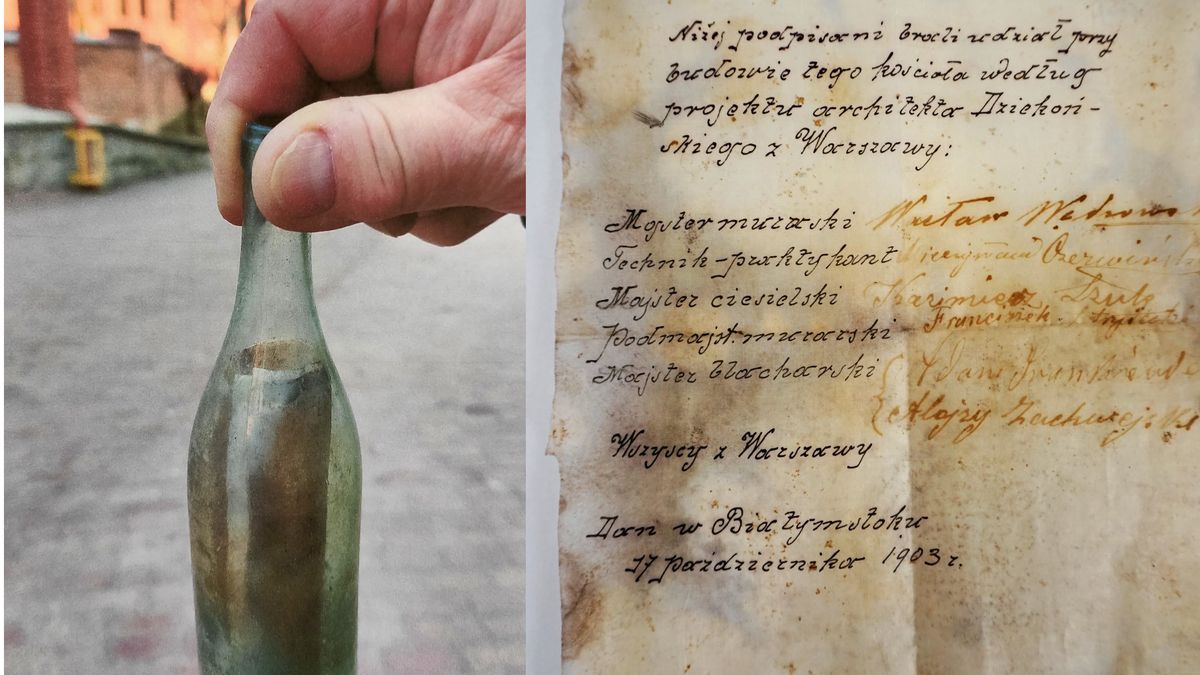 Niżej podpisani brali udział przy
budowie tego kościoła według
projektu architekta Dziekoń-
skiego z Warszawy:
Majster murarski Wacław
Technik-praktykant
Majster ciesielski Kazimierz Szulc
Podmajst. murarski Franciszek
Majster blacharski
Alojzy
Wszyscy z Warszawy
Dan w Białymstoku
17 października 1903 r.